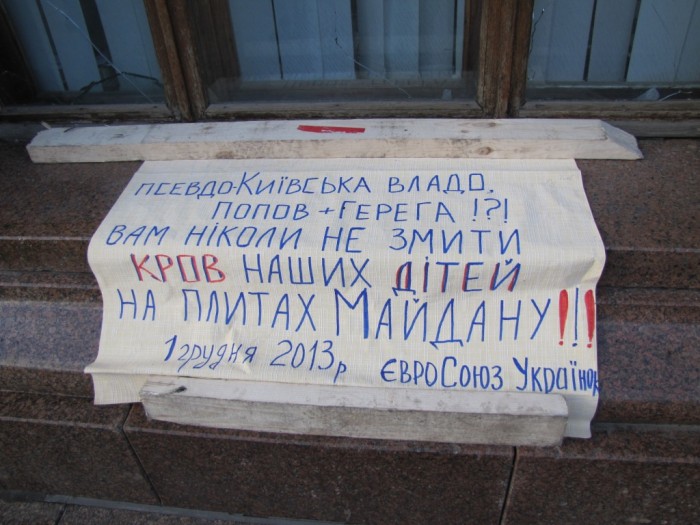 ПСЕВДО-КИЇВСЬКА ВЛАДО,
ПОПОВ + ГЕРЕГА !?!
ВАМ НІКОЛИ НЕ ЗМИТИ
КРОВ НАШИХ ДІТЕЙ
НА ПЛИТАХ МАЙДАНУ!!!
1 грудня 2013р
ЄВРОСОЮЗ УКРАЇНОК